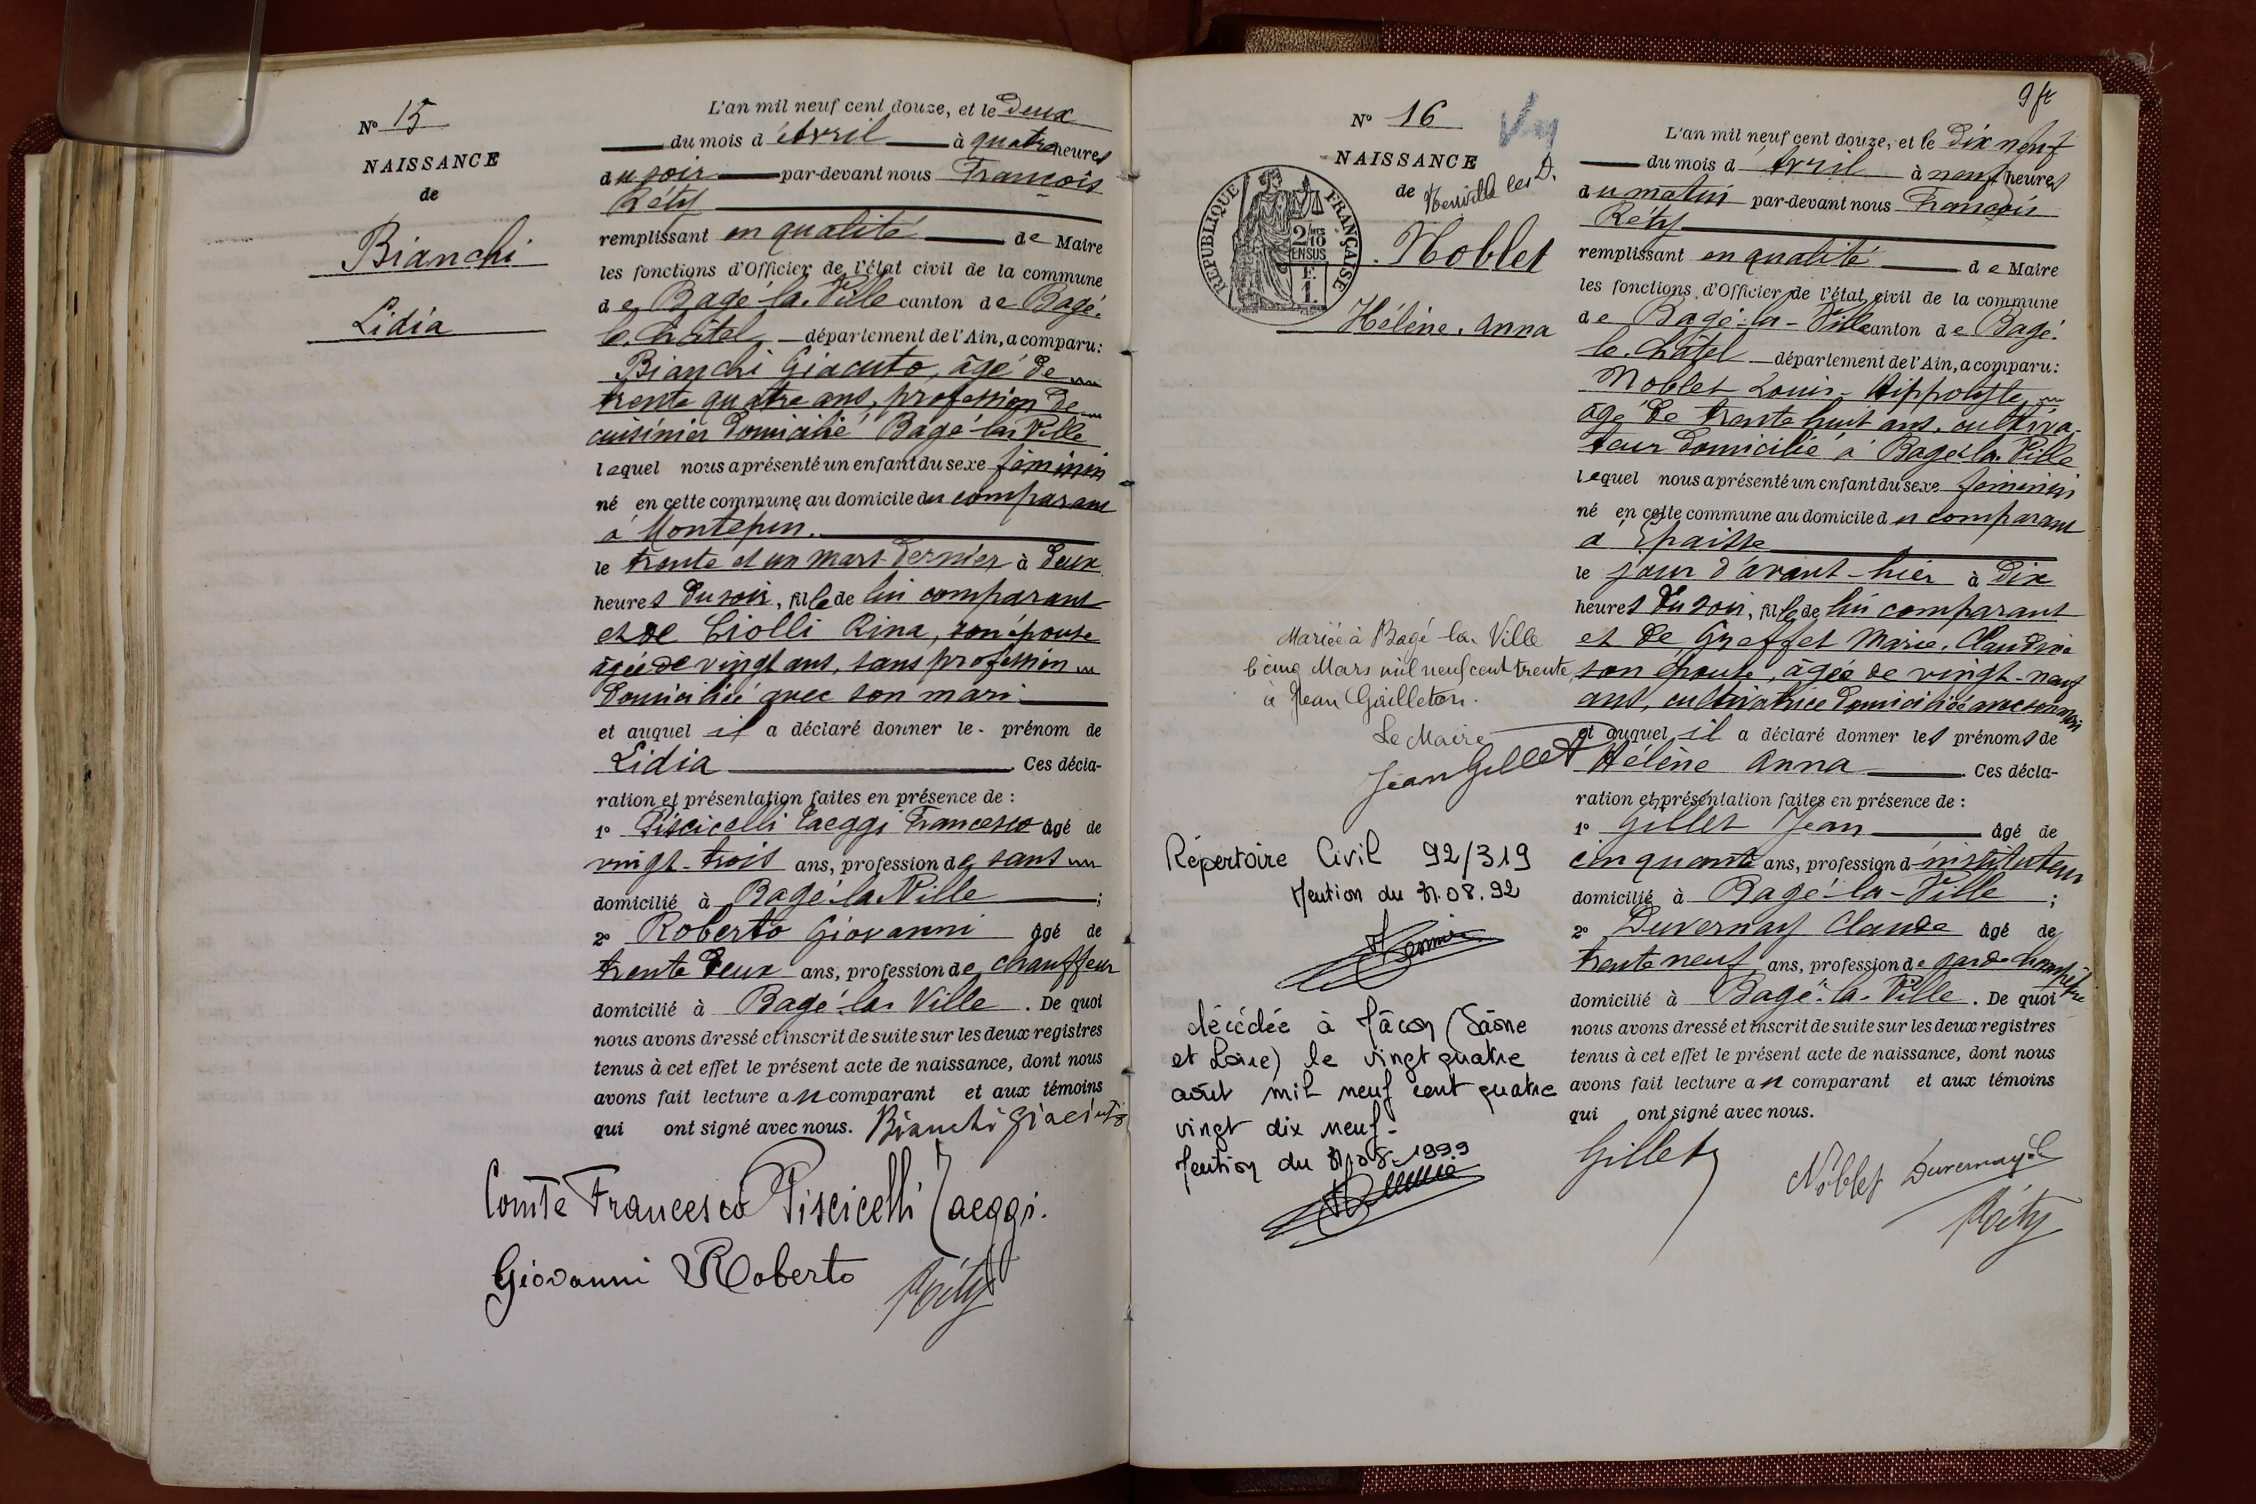 N° 15
NAISSANCE
de
Bianchi
Lidia
L'an mil neuf cent douze, et le Deux
du mois d'Avril à quatre heures
du soir par-devant nous François
Réty
remplissant en qualité de Maire
les fonctions d'Officier de l'état civil de la commune
de Bagé-la-Ville canton de Bagé-
le-Châtel département de l'Ain, a comparu:
Bianchi Giacinto, âgé de
trente quatre ans, profession de
cuisinier domicilié Bagé-la-Ville
lequel nous a présenté un enfant du sexe féminin
né en cette commune au domicile du comparant
à Montépin.
le trente et un mars dernier à deux
heures du soir, fille de lui comparant
et de Ciolli Rina, son épouse
âgée de vingt ans, sans profession
domiciliée avec son mari
et auquel il a déclaré donner le prénom de
Lidia Ces décla-
ration et présentation faites en présence de :
1° Piscicelli Taeggi Francesco âgé de
vingt-trois ans, profession de sans
domicilié à Bagé-la-Ville ;
2° Roberto Giovanni âgé de
trente deux ans, profession de chauffeur
domicilié à Bagé-la-Ville. De quoi
nous avons dressé et inscrit de suite sur les deux registres
tenus à cet effet le présent acte de naissance, dont nous
avons fait lecture au comparant et aux témoins
qui ont signé avec nous. Bianchi Giacinto
Comte Francesco Piscicelli Taeggi.
Giovanni Roberto
Réty
9 fr
N° 16
NAISSANCE
de
Noblet
Hélène, Anna
RÉPUBLIQUE FRANÇAISE
2/10
EN SUS
Mariée à Bagé-la-Ville
le cinq Mars mil neuf cent trente,
à Jean Gailleton.
Le Maire
Jean Gillet
Répertoire Civil 92/319
Mention du 31.08.92
décédée à Mâcon (Saône
et Loire) le vingt quatre
août mil neuf cent quatre
vingt dix neuf.
Mention du 31.08.1999
L'an mil neuf cent douze, et le dix neuf
du mois d'Avril à neuf heures
du matin par-devant nous François
Réty
remplissant en qualité de Maire
les fonctions d'Officier de l'état civil de la commune
de Bagé-la-Ville canton de Bagé-
le-Châtel département de l'Ain, a comparu:
Noblet Louis-Hippolyte
âgé de trente huit ans, cultiva-
teur domicilié à Bagé-la-Ville
lequel nous a présenté un enfant du sexe féminin
né en cette commune au domicile du comparant
à Epaisse
le jour d'avant-hier à dix
heures du soir, fille de lui comparant
et de Greffet Marie, Claudine
son épouse, âgée de vingt-neuf
ans, cultivatrice domiciliée avec son mari
et auquel il a déclaré donner les prénoms de
Hélène Anna Ces décla-
ration et présentation faites en présence de :
1° Gillet Jean âgé de
cinquante ans, profession d'instituteur
domicilié à Bagé-la-Ville ;
2° Duvernay Claude âgé de
trente neuf ans, profession de garde champêtre
domicilié à Bagé-la-Ville. De quoi
nous avons dressé et inscrit de suite sur les deux registres
tenus à cet effet le présent acte de naissance, dont nous
avons fait lecture au comparant et aux témoins
qui ont signé avec nous.
Gillet
Noblet Duvernay C
Réty